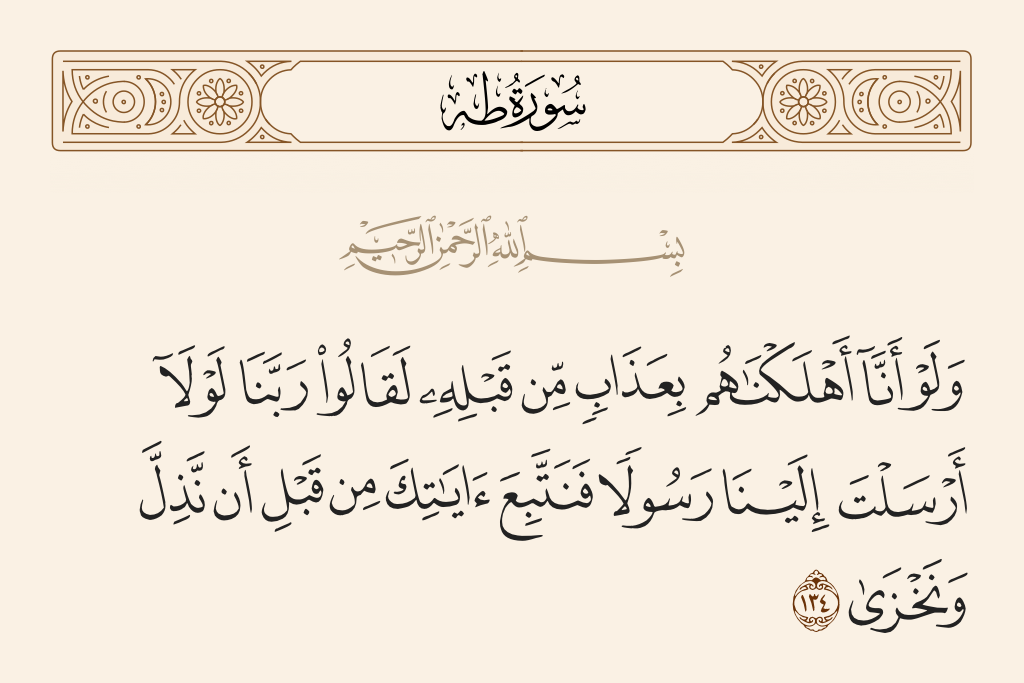 سُورَةُ طه
بِسْمِ ٱللَّهِ ٱلرَّحْمَٰنِ ٱلرَّحِيمِ
وَلَوْ أَنَّآ أَهْلَكْنَٰهُم بِعَذَابٍ مِّن قَبْلِهِۦ لَقَالُوا۟ رَبَّنَا لَوْلَآ
أَرْسَلْتَ إِلَيْنَا رَسُولًا فَنَتَّبِعَ ءَايَٰتِكَ مِن قَبْلِ أَن نَّذِلَّ
وَنَخْزَىٰ ١٣٤